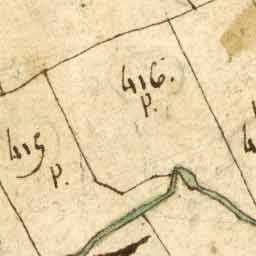 416.
p.
415
p.